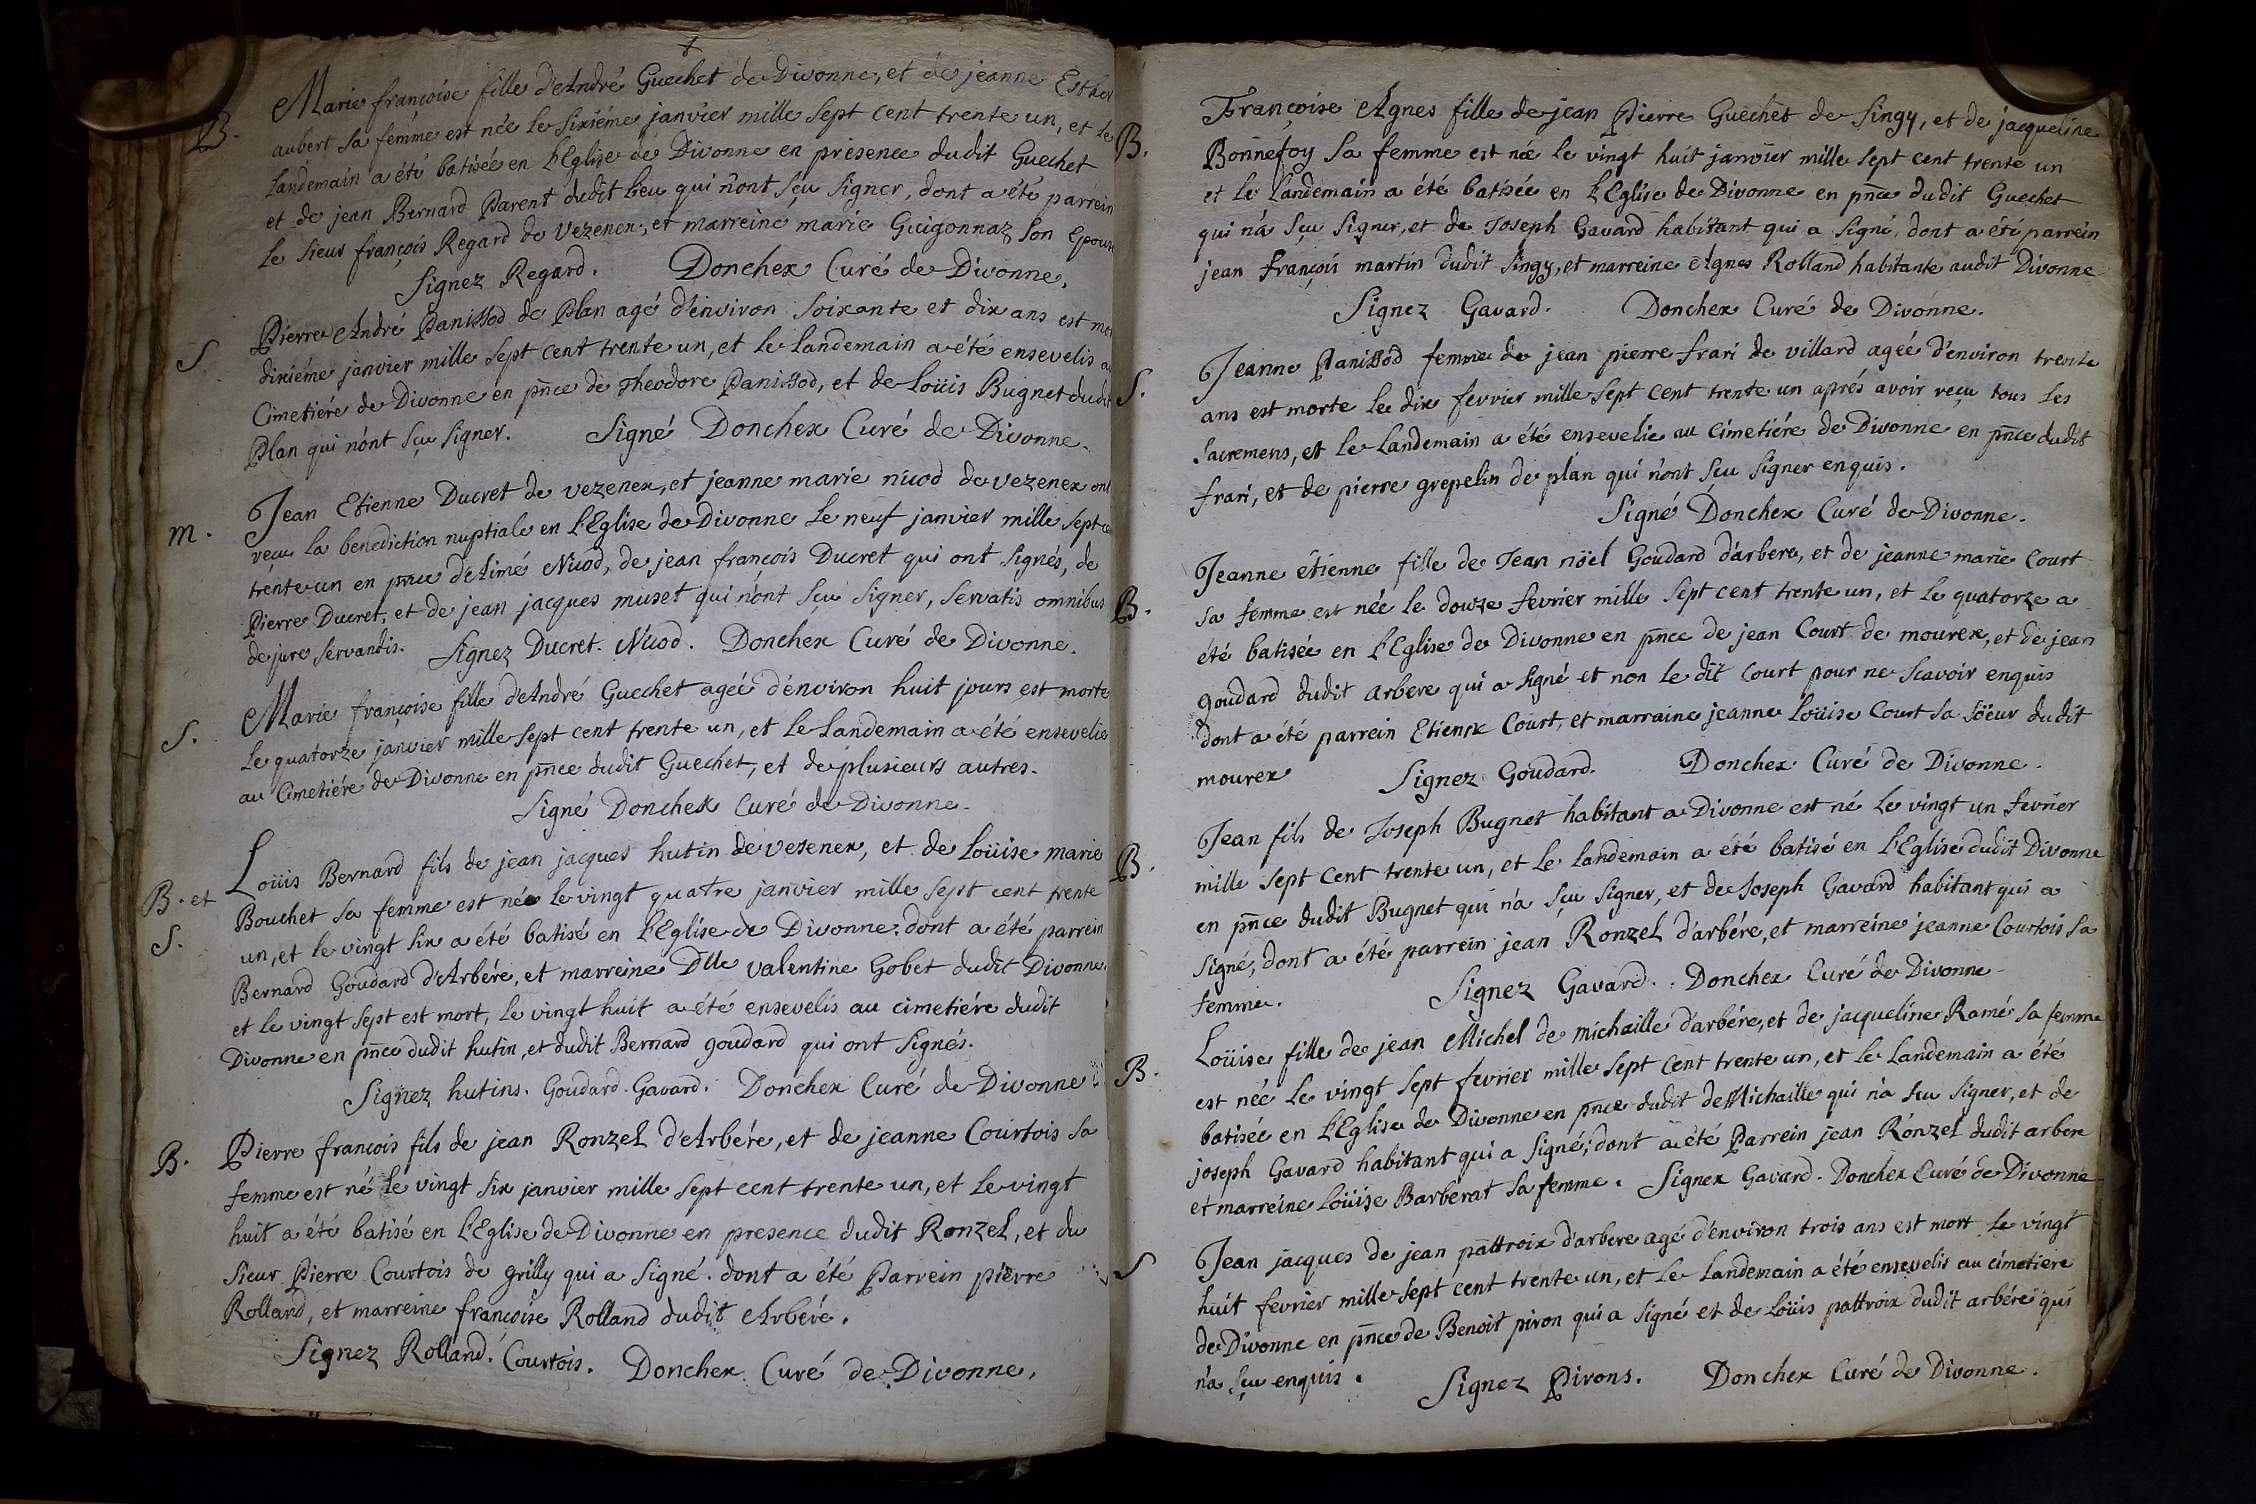 B.
Marie françoise fille d'André Guechet de Divonne, et de jeanne Esther
aubert sa femme est née le sixiéme janvier mille sept cent trente un, et le
landemain a été batisée en l'Eglise de Divonne en presence dudit Guechet
et de jean Bernard Parent dudit lieu qui n'ont sçu signer, dont a été parrein
le sieur françois Regard de Vezenex, et marreine marie Guigonnaz son Epouse
Signez Regard. Donchex Curé de Divonne.
S
Pierre André Panissod de Plan agé d'environ soixante et dix ans est
dixiéme janvier mille sept cent trente un, et le landemain a été ensevelis
Cimetiére de Divonne en pñce de Theodore Panissod, et de Loüis Bugnet dudit
Plan qui n'ont sçu signer. Signé Donchex Curé de Divonne.
m.
Jean Etienne Ducret de vezenex, et jeanne marie nicod de vezenex ont
reçu la benediction nuptiale en l'Eglise de Divonne le neuf janvier mille sept
trente un en pñce d'Aimé Nicod, de jean françois Ducret qui ont signés, de
Pierre Ducret, et de jean jacques muset qui n'ont sçu signer, servatis omnibus
de jure servandis. Signez Ducret. Nicod. Donchex Curé de Divonne.
S.
Marie françoise fille d'André Guechet ageé d'environ huit jours est morte
le quatorze janvier mille sept cent trente un, et le landemain a été ensevelie
au Cimetiére de Divonne en pñce dudit Guechet, et de plusieurs autres.
Signé Donchex Curé de Divonne.
B. et
S.
Loüis Bernard fils de jean jacques hutin de vesenex, et de Loüise marie
Bouchet sa femme est née le vingt quatre janvier mille sept cent trente
un, et le vingt six a été batisé en l'Eglise de Divonne. dont a été parrein
Bernard Goudard d'Arbére, et marreine Dlle valentine Gobet dudit Divonne.
et le vingt sept est mort, le vingt huit a été ensevelis au cimetiére dudit
Divonne en pñce dudit hutin, et dudit Bernard goudard qui ont signés.
Signez hutins. Goudard. Gavard. Donchex Curé de Divonne
B.
Pierre françois fils de jean Ronzel d'Arbére, et de jeanne Courtois sa
femme est né le vingt six janvier mille sept cent trente un, et le vingt
huit a été batisé en l'Eglise de Divonne en presence dudit Ronzel, et du
sieur Pierre Courtois de grilly qui a signé. dont a été Parrein pierre
Rolland, et marreine françoise Rolland dudit Arbére.
Signez Rolland. Courtois. Donchex Curé de Divonne.
B.
Françoise Agnes fille de jean Pierre Guechet de singy, et de jacqueline
Bonnefoy sa femme est née le vingt huit janvier mille sept cent trente un
et le landemain a été batisée en l'Eglise de Divonne en pñce dudit Guechet
qui n'a sçu signer, et de Joseph Gavard habitant qui a signé, dont a été parrein
jean françois martin dudit singy, et marreine Agnes Rolland habitante audit Divonne
Signez Gavard. Donchex Curé de Divonne.
S.
Jeanne Panissod femme de jean pierre frari de villard ageé d'environ trente
ans est morte le dix fevrier mille sept cent trente un aprés avoir reçu tous les
sacremens, et le landemain a été ensevelie au cimetiére de Divonne en pñce dudit
frari, et de pierre grepelin de plan qui n'ont sçu signer enquis.
Signé Donchex Curé de Divonne.
B.
Jeanne étienne fille de Jean nöel Goudard d'arbere, et de jeanne marie Court
sa femme est née le douze fevrier mille sept cent trente un, et le quatorze a
été batisée en l'Eglise de Divonne en pñce de jean Court de mourex, et de jean
goudard dudit arbere qui a signé et non le dit Court pour ne scavoir enquis
dont a été parrein Etienne Court, et marraine jeanne Loüise Court sa söeur dudit
mourex Signez Goudard. Donchex Curé de Divonne.
B.
Jean fils de Joseph Bugnet habitant a Divonne est né le vingt un fevrier
mille sept cent trente un, et le landemain a été batisé en l'Eglise dudit Divonne
en pñce dudit Bugnet qui n'a sçu signer, et de Joseph Gavard habitant qui a
signé, dont a été parrein jean Ronzel d'arbére, et marreine jeanne Courtois sa
femme. Signez Gavard. Donchex Curé de Divonne.
B.
Loüise fille de jean Michel de michaille d'arbére, et de jacqueline Ramé sa femme
est née le vingt sept fevrier mille sept cent trente un, et le landemain a été
batisée en l'Eglise de Divonne en pñce dudit deMichaille qui n'a sçu signer, et de
joseph Gavard habitant qui a signé; dont a été Parrein jean Ronzel dudit arbere
et marreine Loüise Barberat sa femme. Signex Gavard. Donchex Curé de Divonne
S
Jean jacques de jean pattroix d'arbere agé d'environ trois ans est mort le vingt
huit fevrier mille sept cent trente un, et le landemain a été ensevelis au cimetiere
de Divonne en pñce de Benoit piron qui a signé et de Loüis pattroix dudit arbére qui
n'a sçu enquis. Signez Pirons. Donchex Curé de Divonne.